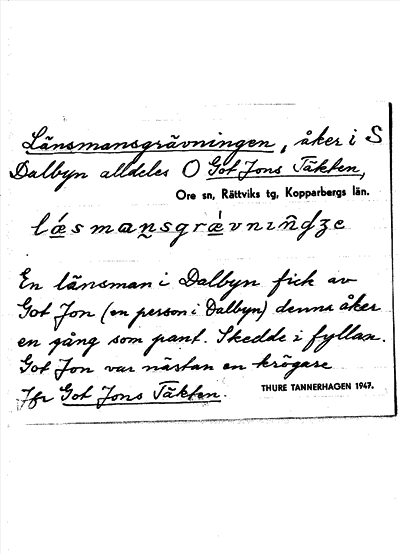 Länsmansgrävningen, åker i S
Dalbyn alldeles O Got Jons Täkten,
Ore sn, Rättviks tg, Kopparbergs län.
lǽsmansgrǽvnɩñdʒe
En länsman i Dalbyn fick av
Got Jon (en person i Dalbyn) denna åker
en gång som pant. Skedde i fyllan.
Got Jon var nästan en krögare
Jfr Got Jons Täkten.
THURE TANNERHAGEN 1947.